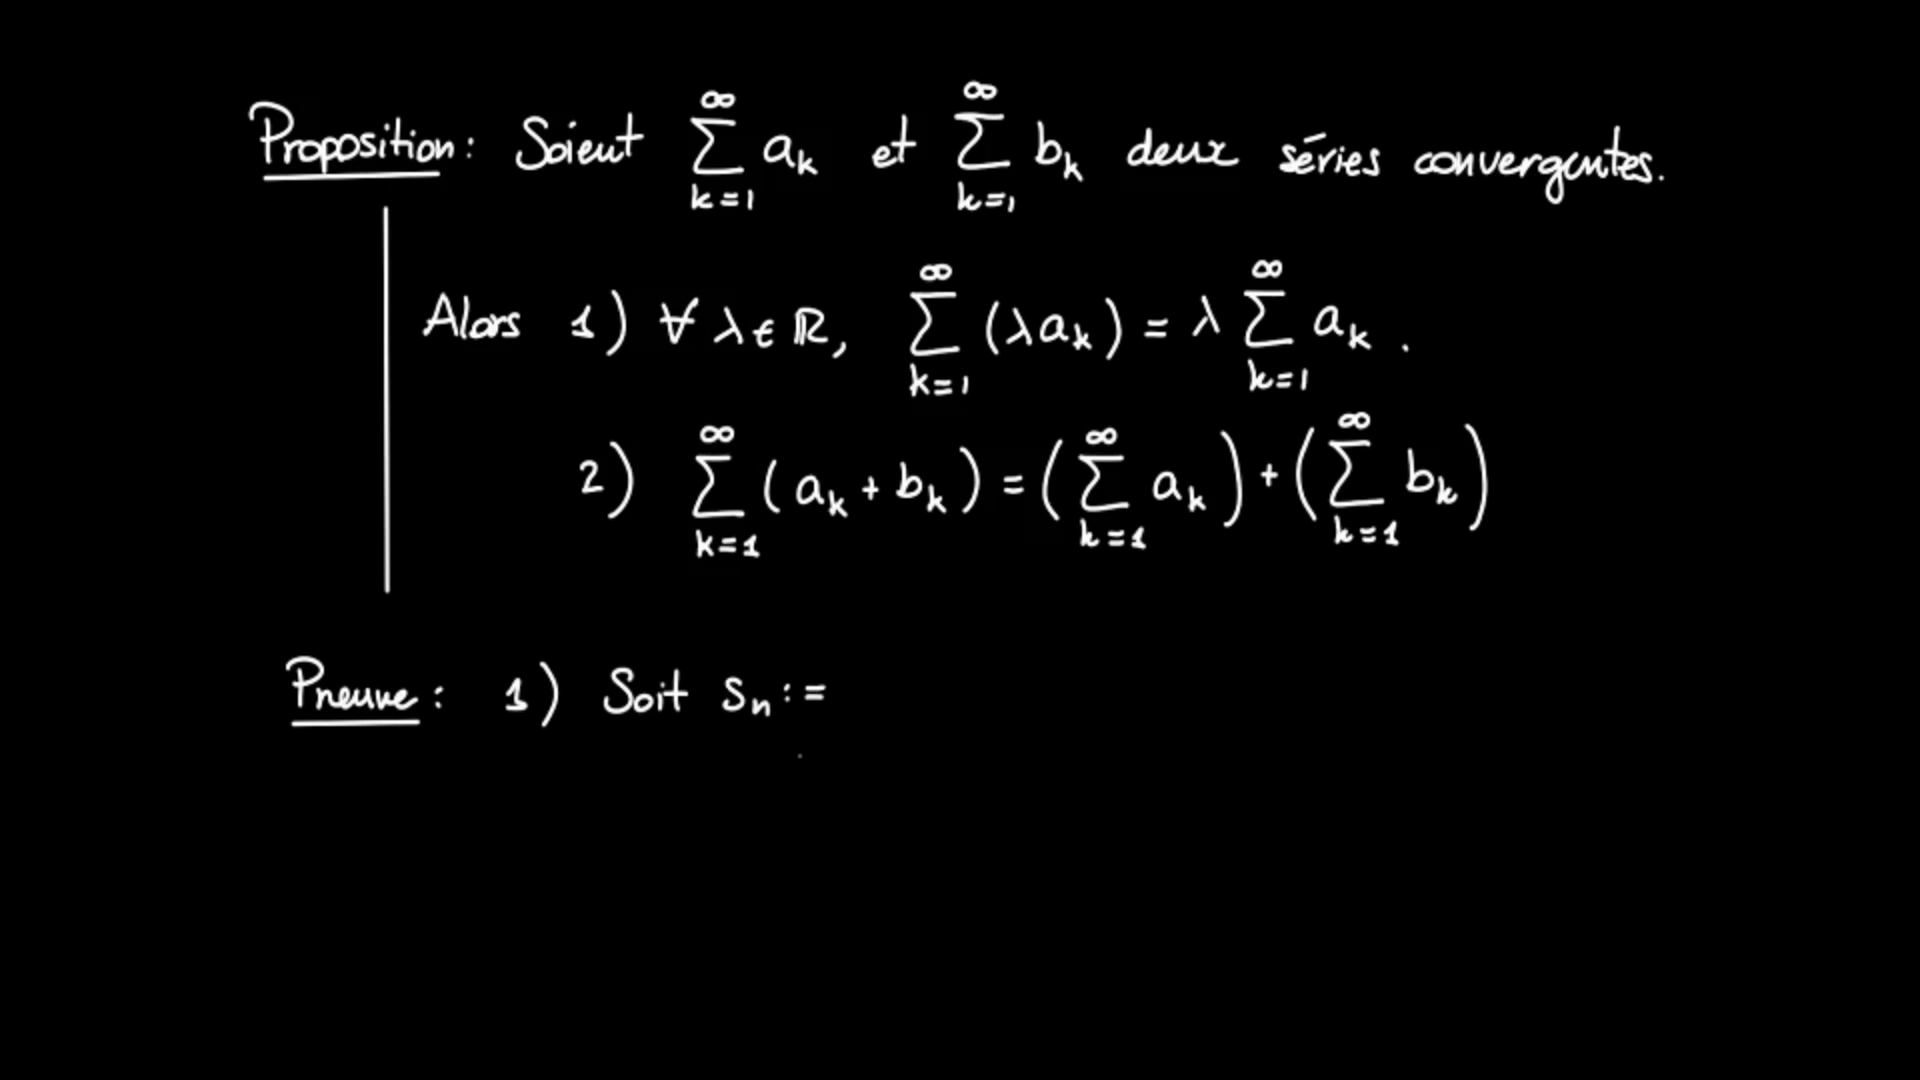 Proposition : Soient ∑_{k=1}^{∞} a_k et ∑_{k=1}^{∞} b_k deux séries convergentes.
Alors 1) ∀ λ ∈ ℝ, ∑_{k=1}^{∞} (λ a_k) = λ ∑_{k=1}^{∞} a_k .
2) ∑_{k=1}^{∞} (a_k + b_k) = (∑_{k=1}^{∞} a_k) + (∑_{k=1}^{∞} b_k)
Preuve : 1) Soit s_n :=